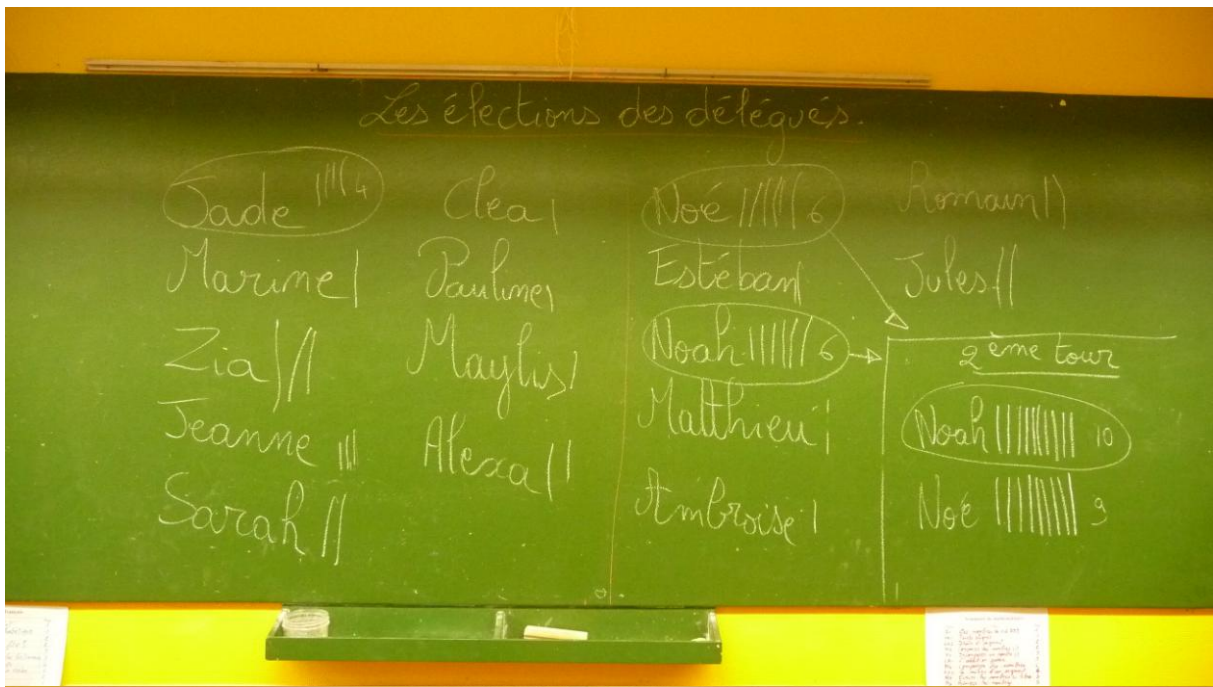 Les élections des délégués.
Jade |||| 4
Marine |
Zia |||
Jeanne |||
Sarah ||
Clea |
Pauline |
Maylis |
Alexa ||
Noé |||||| 6
Estéban |
Noah |||||| 6
Matthieu |
Ambroise |
Romain ||
Jules ||
2ème tour
Noah |||||||||| 10
Noé ||||||||| 9